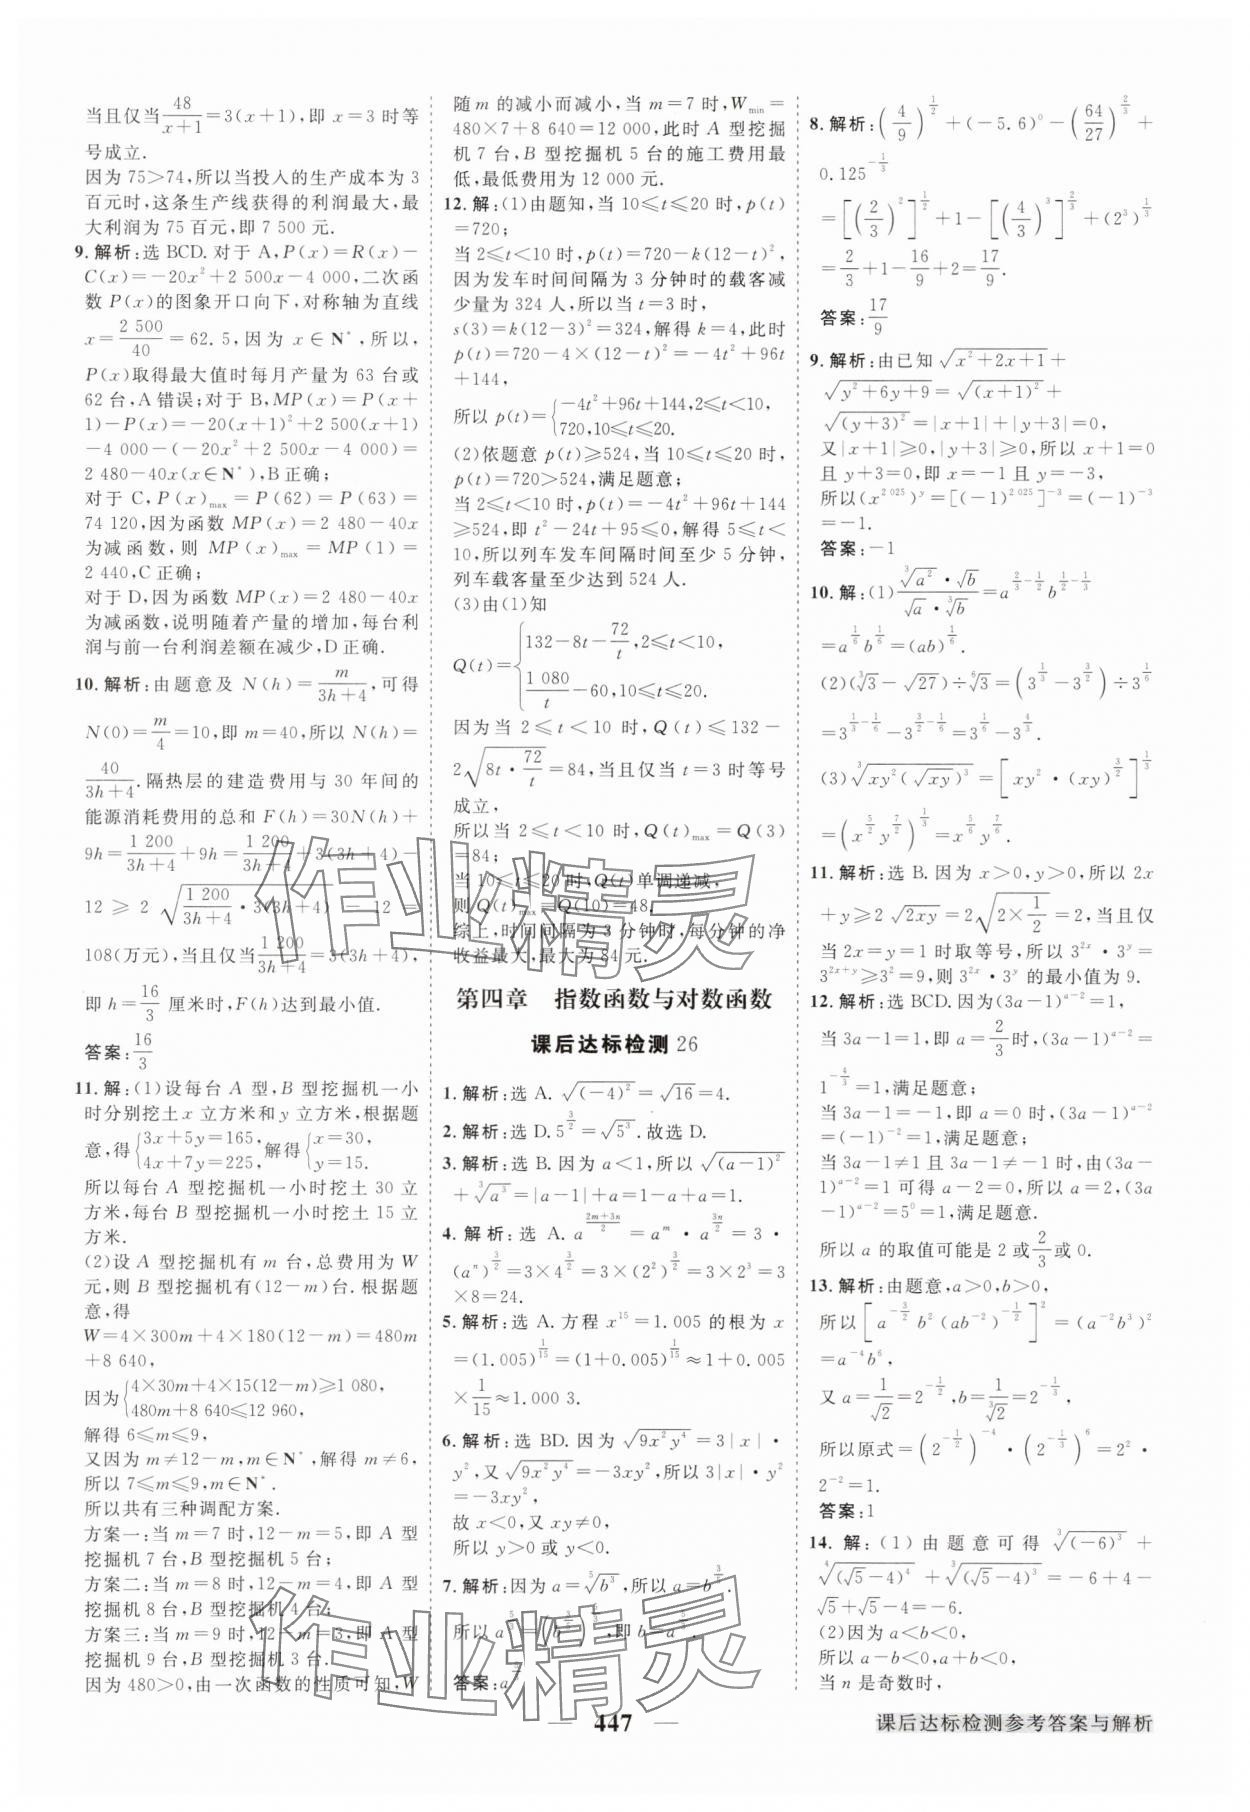 当且仅当48/(x+1)=3(x+1),即 x=3 时等
号成立.
因为 75>74,所以当投入的生产成本为 3
百元时,这条生产线获得的利润最大,最
大利润为 75 百元,即 7 500 元.
9.解析:选 BCD.对于 A,P(x)=R(x)-
C(x)=-20x²+2 500x-4 000,二次函
数 P(x)的图象开口向下,对称轴为直线
x=2 500/40=62.5,因为 x∈N*,所以,
P(x)取得最大值时每月产量为 63 台或
62 台,A 错误;对于 B,MP(x)=P(x+
1)-P(x)=-20(x+1)²+2 500(x+1)
-4 000-(-20x²+2 500x-4 000)=
2 480-40x(x∈N*),B 正确;
对于 C,P(x)max=P(62)=P(63)=
74 120,因为函数 MP(x)=2 480-40x
为减函数,则 MP(x)max=MP(1)=
2 440,C 正确;
对于 D,因为函数 MP(x)=2 480-40x
为减函数,说明随着产量的增加,每台利
润与前一台利润差额在减少,D 正确.
10.解析:由题意及 N(h)=m/(3h+4),可得
N(0)=m/4=10,即 m=40,所以 N(h)=
40/(3h+4).隔热层的建造费用与 30 年间的
能源消耗费用的总和 F(h)=30N(h)+
9h=1 200/(3h+4)+9h=1 200/(3h+4)+3(3h+4)-
12≥2√(1 200/(3h+4)·3(3h+4))-12=
108(万元),当且仅当1 200/(3h+4)=3(3h+4),
即 h=16/3 厘米时,F(h)达到最小值.
答案:16/3
11.解:(1)设每台 A 型,B 型挖掘机一小
时分别挖土 x 立方米和 y 立方米,根据题
意,得{3x+5y=165, 4x+7y=225,解得{x=30, y=15.
所以每台 A 型挖掘机一小时挖土 30 立
方米,每台 B 型挖掘机一小时挖土 15 立
方米.
(2)设 A 型挖掘机有 m 台,总费用为 W
元,则 B 型挖掘机有(12-m)台.根据题
意,得
W=4×300m+4×180(12-m)=480m
+8 640,
因为{4×30m+4×15(12-m)≥1 080, 480m+8 640≤12 960,
解得 6≤m≤9,
又因为 m≠12-m,m∈N*,解得 m≠6,
所以 7≤m≤9,m∈N*.
所以共有三种调配方案.
方案一:当 m=7 时,12-m=5,即 A 型
挖掘机 7 台,B 型挖掘机 5 台;
方案二:当 m=8 时,12-m=4,即 A 型
挖掘机 8 台,B 型挖掘机 4 台;
方案三:当 m=9 时,12-m=3,即 A 型
挖掘机 9 台,B 型挖掘机 3 台.
因为 480>0,由一次函数的性质可知,W
随 m 的减小而减小,当 m=7 时,Wmin=
480×7+8 640=12 000,此时 A 型挖掘
机 7 台,B 型挖掘机 5 台的施工费用最
低,最低费用为 12 000 元.
12.解:(1)由题知,当 10≤t≤20 时,p(t)
=720;
当 2≤t<10 时,p(t)=720-k(12-t)²,
因为发车时间间隔为 3 分钟时的载客减
少量为 324 人,所以当 t=3 时,
s(3)=k(12-3)²=324,解得 k=4,此时
p(t)=720-4×(12-t)²=-4t²+96t
+144,
所以 p(t)={-4t²+96t+144,2≤t<10, 720,10≤t≤20.
(2)依题意 p(t)≥524,当 10≤t≤20 时,
p(t)=720>524,满足题意;
当 2≤t<10 时,p(t)=-4t²+96t+144
≥524,即 t²-24t+95≤0,解得 5≤t<
10,所以列车发车间隔时间至少 5 分钟,
列车载客量至少达到 524 人.
(3)由(1)知
Q(t)={132-8t-72/t,2≤t<10, 1 080/t-60,10≤t≤20.
因为当 2≤t<10 时,Q(t)≤132-
2√(8t·72/t)=84,当且仅当 t=3 时等号
成立,
所以当 2≤t<10 时,Q(t)max=Q(3)
=84;
当 10≤t≤20 时,Q(t)单调递减,
则 Q(t)max=Q(10)=48,
综上,时间间隔为 3 分钟时,每分钟的净
收益最大,最大为 84 元.
第四章 指数函数与对数函数
课后达标检测 26
1.解析:选 A.√((-4)²)=√16=4.
2.解析:选 D.5^(3/2)=√(5³).故选 D.
3.解析:选 B.因为 a<1,所以 √((a-1)²)
+³√(a³)=|a-1|+a=1-a+a=1.
4.解析:选 A.a^((2m+3n)/2)=a^m·a^(3n/2)=3·
(aⁿ)^(3/2)=3×4^(3/2)=3×(2²)^(3/2)=3×2³=3
×8=24.
5.解析:选 A.方程 x¹⁵=1.005 的根为 x
=(1.005)^(1/15)=(1+0.005)^(1/15)≈1+0.005
×1/15≈1.000 3.
6.解析:选 BD.因为 √(9x²y⁴)=3|x|·
y²,又 √(9x²y⁴)=-3xy²,所以 3|x|·y²
=-3xy²,
故 x<0,又 xy≠0,
所以 y>0 或 y<0.
7.解析:因为 a=⁵√(b³),所以 a=b^(3/5),
所以 a^(5/3)=(b^(3/5))^(5/3),即 b=a^(5/3).
答案:a^(5/3)
8.解析:(4/9)^(1/2)+(-5.6)⁰-(64/27)^(2/3)+
0.125^(-1/3)
=[(2/3)²]^(1/2)+1-[(4/3)³]^(2/3)+(2³)^(1/3)
=2/3+1-16/9+2=17/9.
答案:17/9
9.解析:由已知 √(x²+2x+1)+
√(y²+6y+9)=√((x+1)²)+
√((y+3)²)=|x+1|+|y+3|=0,
又|x+1|≥0,|y+3|≥0,所以 x+1=0
且 y+3=0,即 x=-1 且 y=-3,
所以(x^(2 025))^y=[(-1)^(2 025)]^(-3)=(-1)^(-3)
=-1.
答案:-1
10.解:(1)(³√(a²)·√b)/(√a·³√b)=a^(2/3-1/2)b^(1/2-1/3)
=a^(1/6)b^(1/6)=(ab)^(1/6).
(2)(³√3-√27)÷⁶√3=(3^(1/3)-3^(3/2))÷3^(1/6)
=3^(1/3-1/6)-3^(3/2-1/6)=3^(1/6)-3^(4/3).
(3)³√(xy²(√(xy))³)=[xy²·(xy)^(3/2)]^(1/3)
=(x^(5/2)y^(7/2))^(1/3)=x^(5/6)y^(7/6).
11.解析:选 B.因为 x>0,y>0,所以 2x
+y≥2√(2xy)=2√(2×1/2)=2,当且仅
当 2x=y=1 时取等号,所以 3^(2x)·3^y=
3^(2x+y)≥3²=9,则 3^(2x)·3^y 的最小值为 9.
12.解析:选 BCD.因为(3a-1)^(a-2)=1,所以
当 3a-1=1,即 a=2/3时,(3a-1)^(a-2)=
1^(-4/3)=1,满足题意;
当 3a-1=-1,即 a=0 时,(3a-1)^(a-2)
=(-1)^(-2)=1,满足题意;
当 3a-1≠1 且 3a-1≠-1 时,由(3a-
1)^(a-2)=1 可得 a-2=0,所以 a=2,(3a
-1)^(a-2)=5⁰=1,满足题意.
所以 a 的取值可能是 2 或2/3或 0.
13.解析:由题意,a>0,b>0,
所以[a^(-3/2)b²(ab^(-2))^(-1/2)]²=(a^(-2)b³)²
=a^(-4)b⁶,
又 a=1/√2=2^(-1/2),b=1/³√2=2^(-1/3),
所以原式=(2^(-1/2))^(-4)·(2^(-1/3))⁶=2²·
2^(-2)=1.
答案:1
14.解:(1)由题意可得 ³√((-6)³)+
⁴√((√5-4)⁴)+³√((√5-4)³)=-6+4-
√5+√5-4=-6.
(2)因为 a<b<0,
所以 a-b<0,a+b<0,
当 n 是奇数时,
447
课后达标检测参考答案与解析
作业精灵
作业精灵